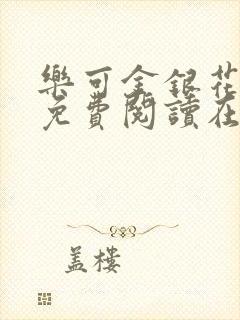 樂可金銀花
免費閱讀在
盖樓